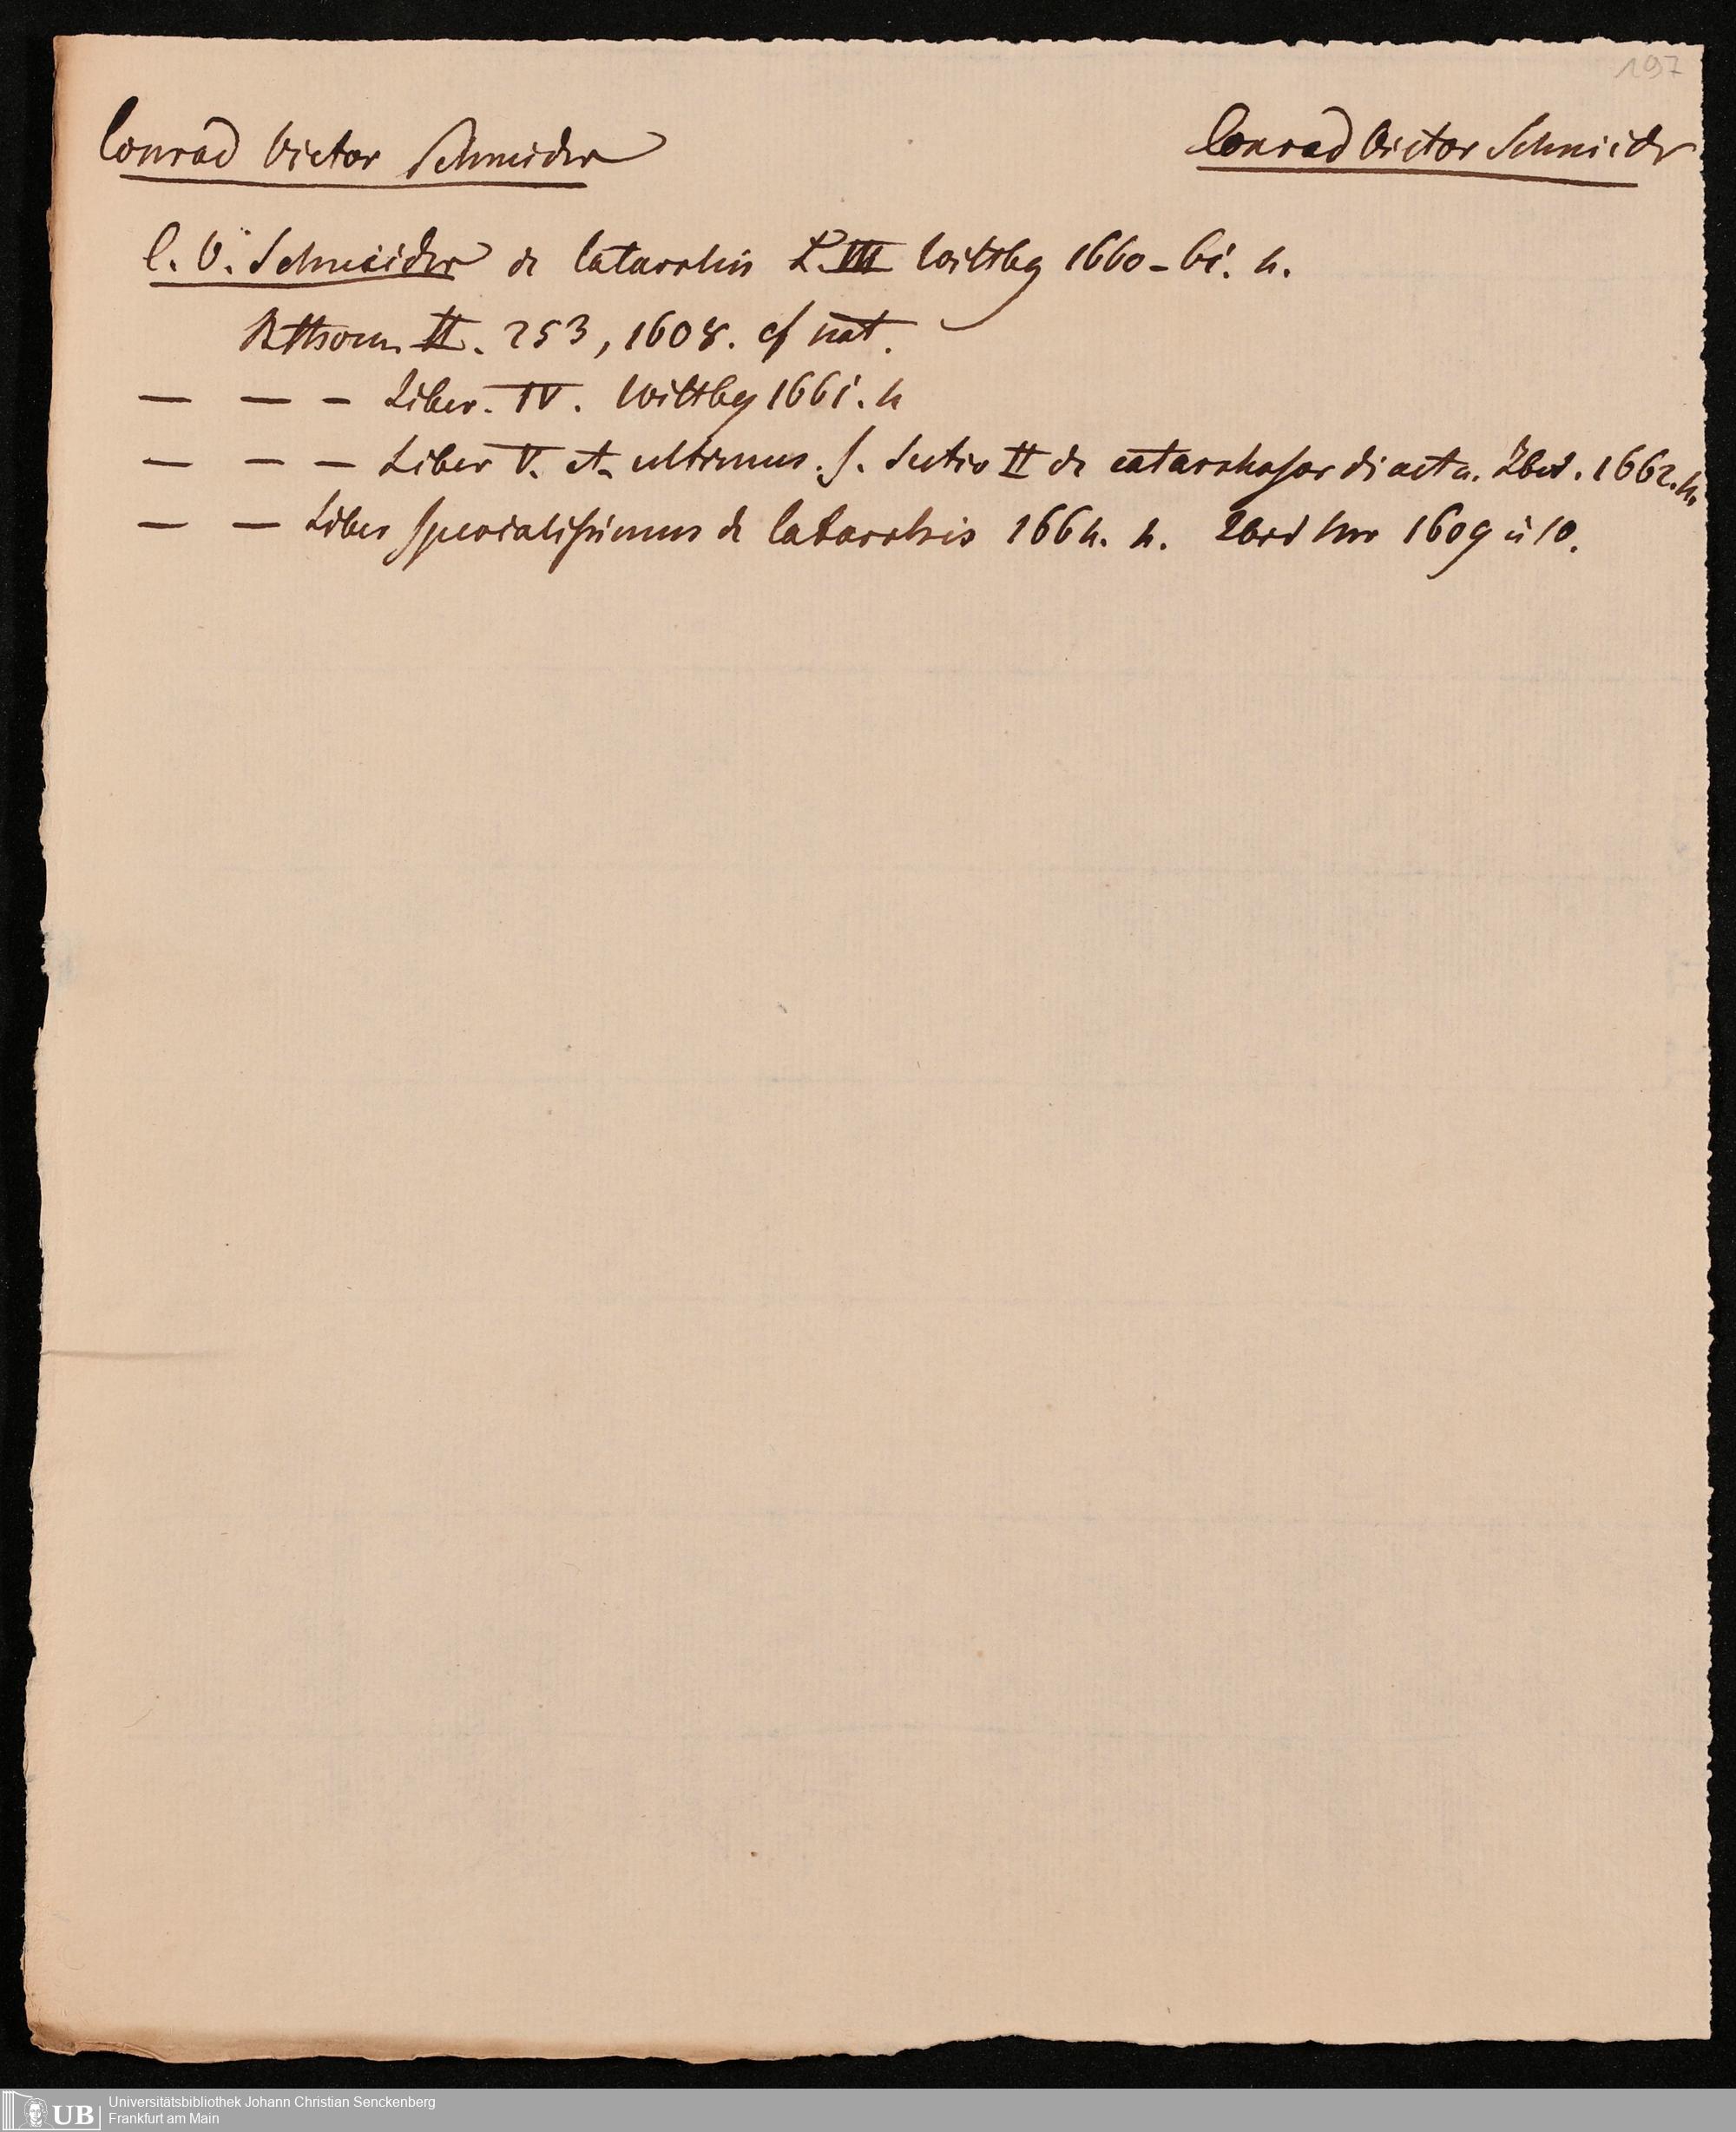 197
Conrad Victor Schneider
Conrad Victor Schneider
C. V. Schneider de Catarrhis L. III Wittbg 1660-61. 4.
II. 253, 1608. cf nat.
— — — Liber. IV. Wittbg 1661. 4
— — — Liber V. et ultimus. s. Sectio II de catarrhosor diaeta. Ibid. 1662. 4.
— — Liber specialissimus de Catarrhis 1664. 4. Ibid Nro 1609 u 10.
UB
Universitätsbibliothek Johann Christian Senckenberg
Frankfurt am Main